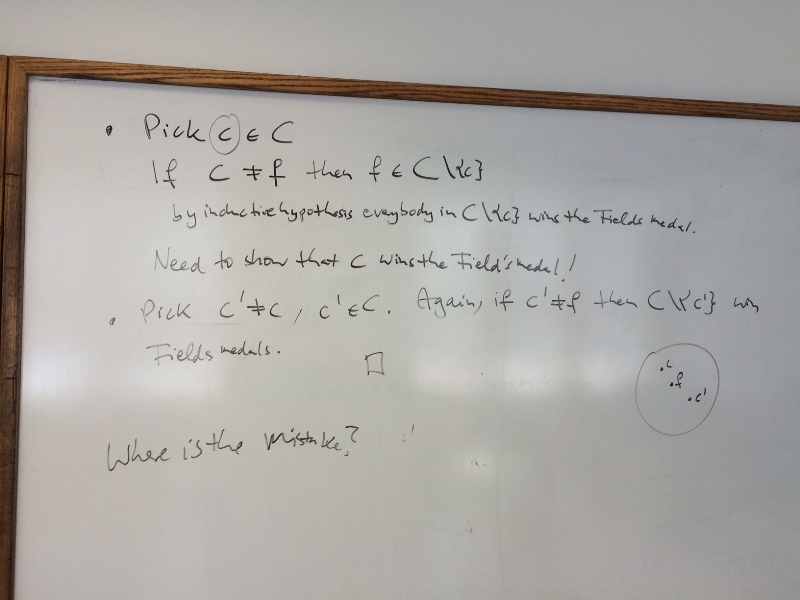 • Pick c ∈ C
If c ≠ f then f ∈ C\{c}
by inductive hypothesis everybody in C\{c} wins the Fields medal.
Need to show that c wins the Field's medal!
• Pick c' ≠ c, c' ∈ C. Again, if c' ≠ f then C\{c'} win
Fields medals. □
.c
.f
.c'
Where is the mistake?